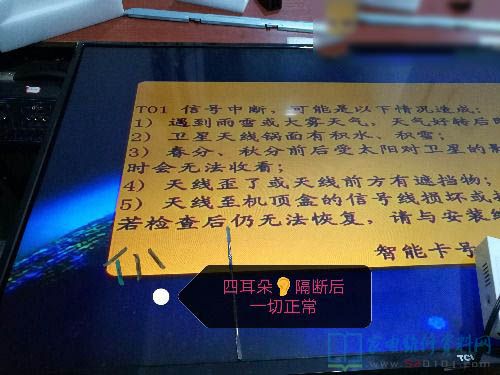 T01 信号中断，可能是以下情况造成：
1) 遇到雨雪或大雾天气，天气好转后
2) 卫星天线锅面有积水、积雪；
3) 春分、秋分前后受太阳对卫星的影
时会无法收看；
4) 天线歪了或天线前方有遮挡物；
5) 天线至机顶盒的信号线损坏或
若检查后仍无法恢复，请与安装
智能卡号
四耳朵👂隔断后
一切正常
家电维修资料网
www.520101.com
TCL